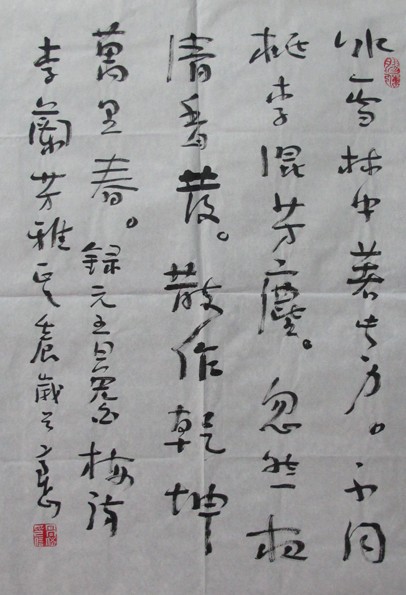 冰雪林中著此身。不同
桃李混芳塵。忽然一夜
清香發。散作乾坤
萬里春。録元王冕白梅詩
李蘭芳雅正 辰歲